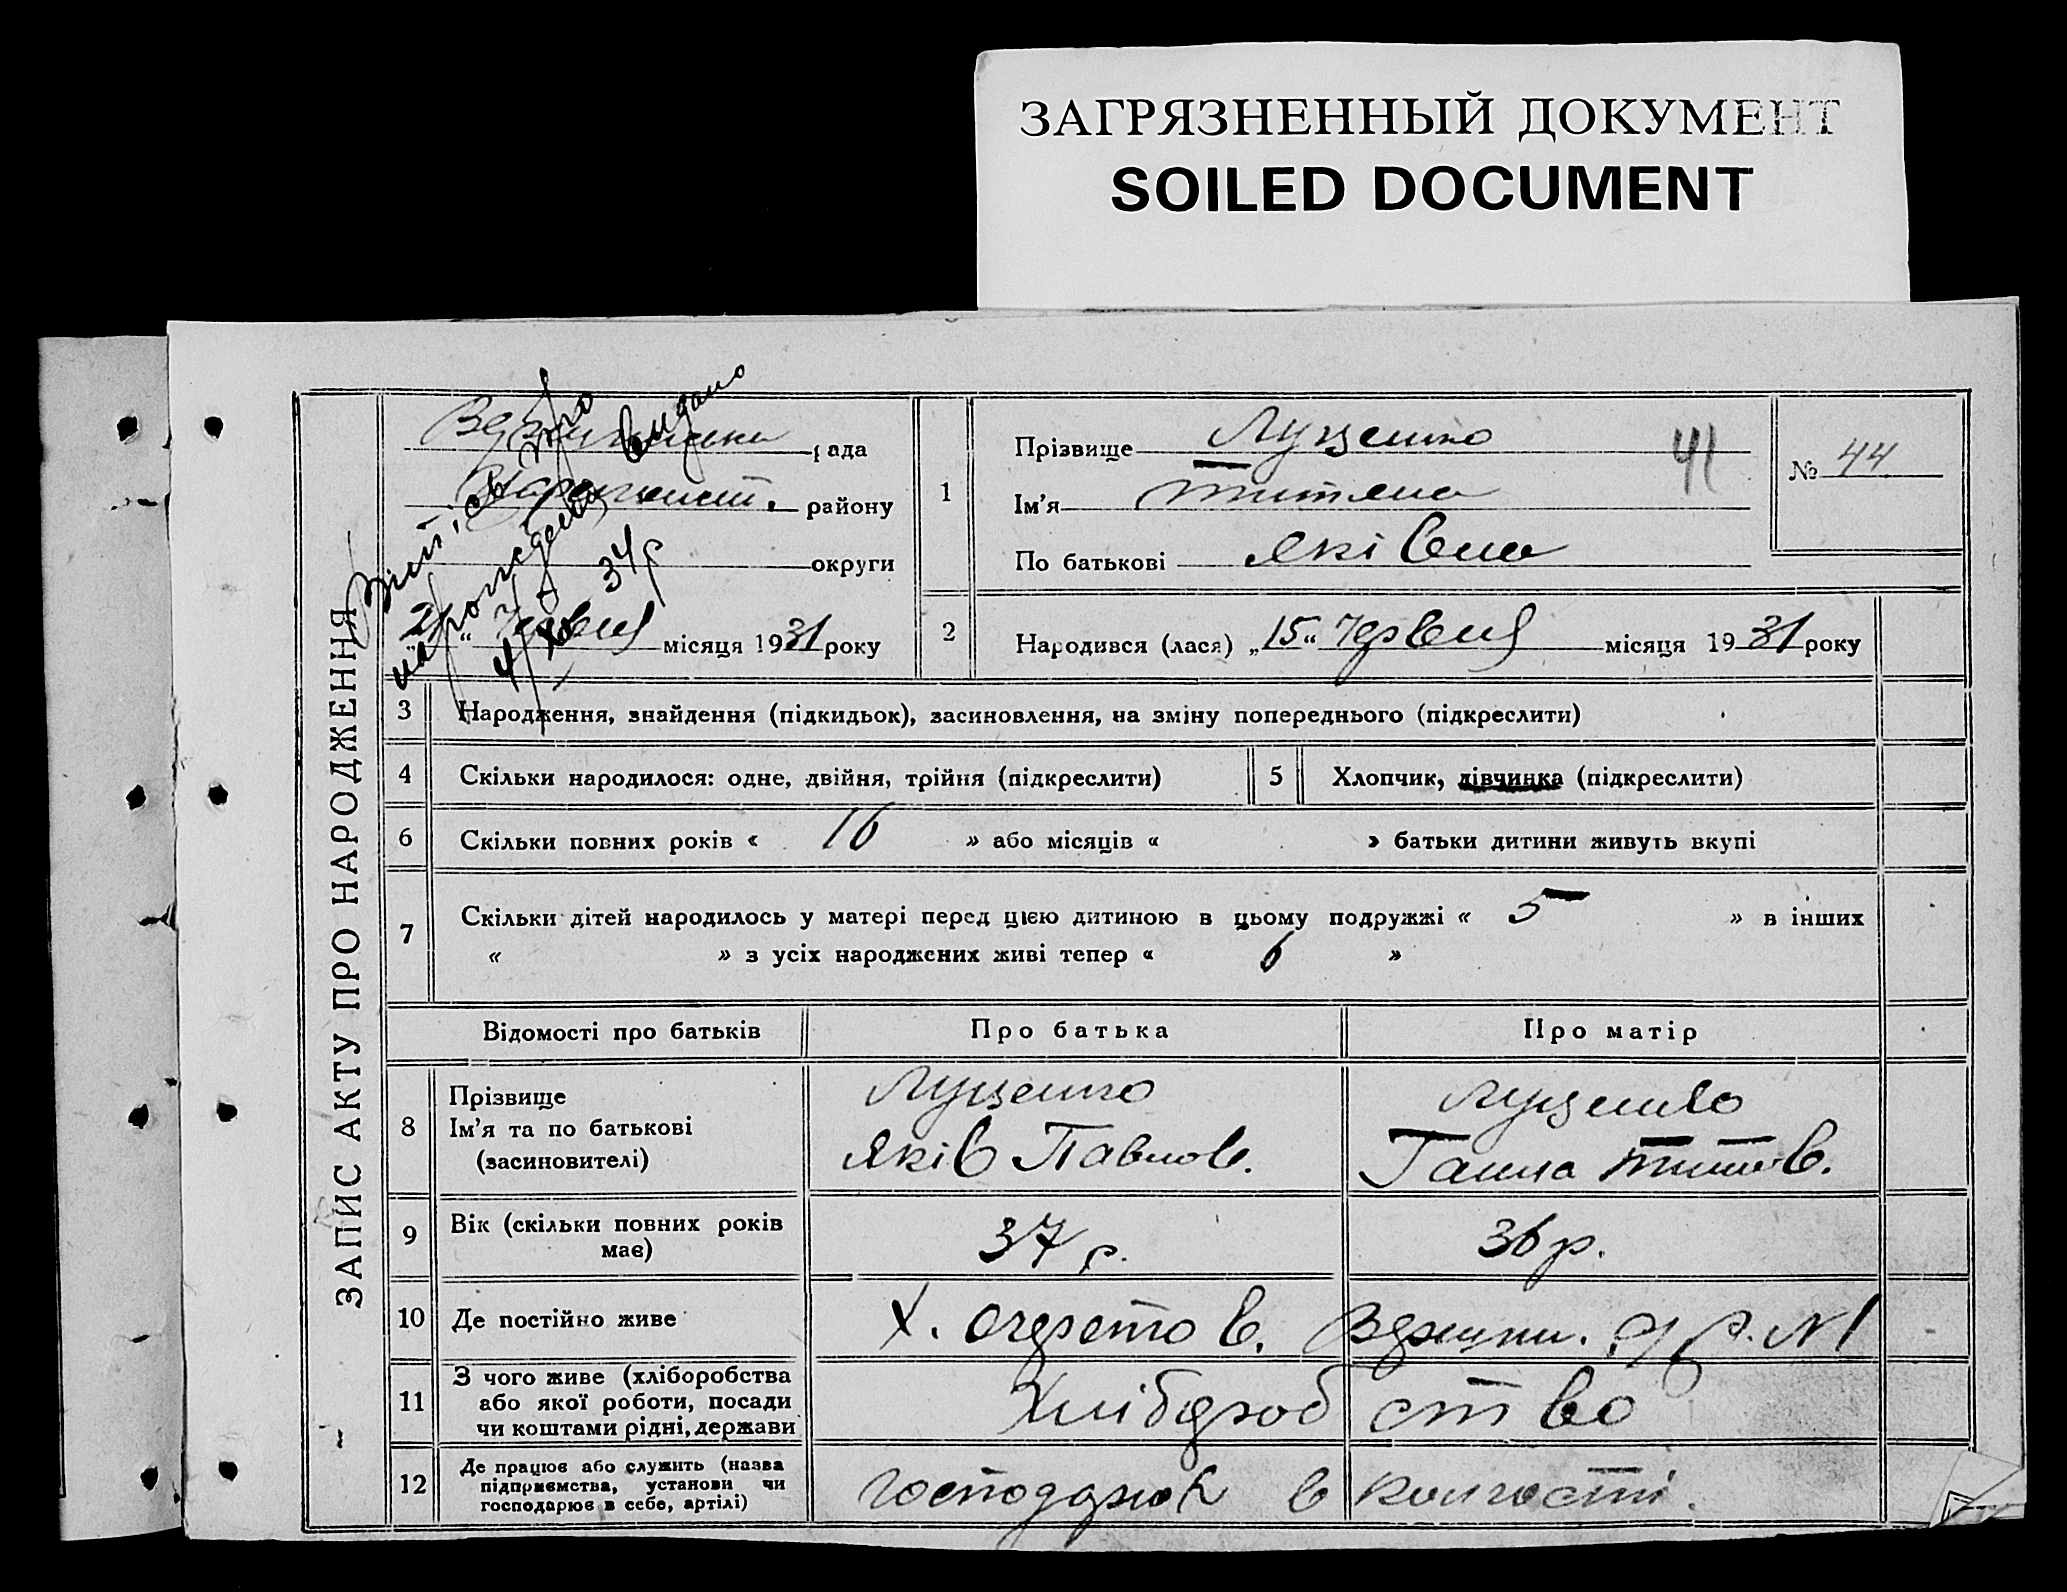 ЗАГРЯЗНЕННЫЙ ДОКУМЕНТ
SOILED DOCUMENT
ЗАПИС АКТУ ПРО НАРОДЖЕННЯ
рада
району
округи
Випись про
народження видано
4/XII 34 р
"21" Червня місяця 1931 року
1
Прізвище Луценко
41
Ім'я Титяна
По батькові Яківна
№ 44
2
Народився (лася) „15" Червня місяця 1931 року
3 Народження, знайдення (підкидьок), засиновлення, на зміну попереднього (підкреслити)
4 Скільки народилося: одне, двійня, трійня (підкреслити)
5 Хлопчик, дівчинка (підкреслити)
6 Скільки повних років « 16 » або місяців « » батьки дитини живуть вкупі
7 Скільки дітей народилось у матері перед цією дитиною в цьому подружжі « 5 » в інших
« » з усіх народжених живі тепер « 6 »
Відомості про батьків Про батька Про матір
8 Прізвище Ім'я та по батькові (засиновителі)
Луценко Яків Павлов.
Луценко Ганна Титов.
9 Вік (скільки повних років має) 37 р. 36 р.
10 Де постійно живе Х. Очерето в.
11 З чого живе (хліборобства або якої роботи, посади чи коштами рідні, держави
Хліборобство
12 Де працює або служить (назва підприємства, установи чи господарює в себе, артілі)
господарює в колгоспі.